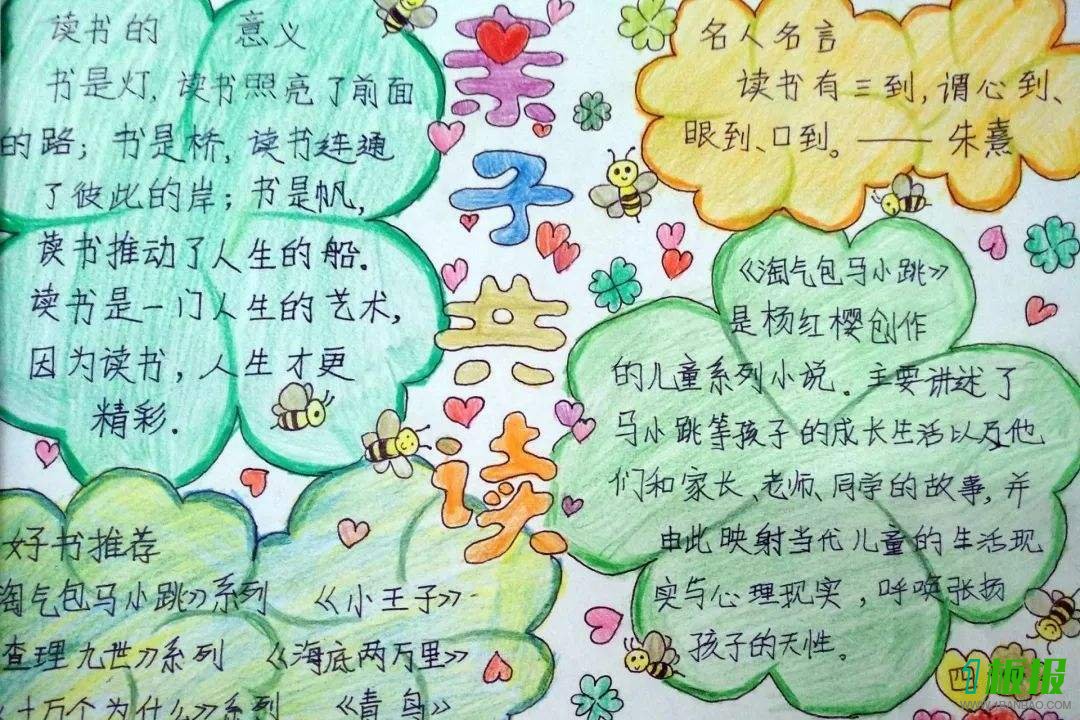 亲子共读
读书的 意义
书是灯,读书照亮了前面
的路；书是桥,读书连通
了彼此的岸；书是帆,
读书推动了人生的船.
读书是一门人生的艺术,
因为读书,人生才更
精彩.
名人名言
读书有三到,谓心到、
眼到、口到。——朱熹
《淘气包马小跳》
是杨红樱创作
的儿童系列小说。主要讲述了
马小跳等孩子的成长生活以及他
们和家长、老师、同学的故事,并
由此映射当代儿童的生活现
实与心理现实,呼唤张扬
孩子的天性。
好书推荐
淘气包马小跳》系列 《小王子》
查理九世》系列 《海底两万里》
十万个为什么》系列 《青鸟》
四
1板报
WWW.1BANBAO.COM